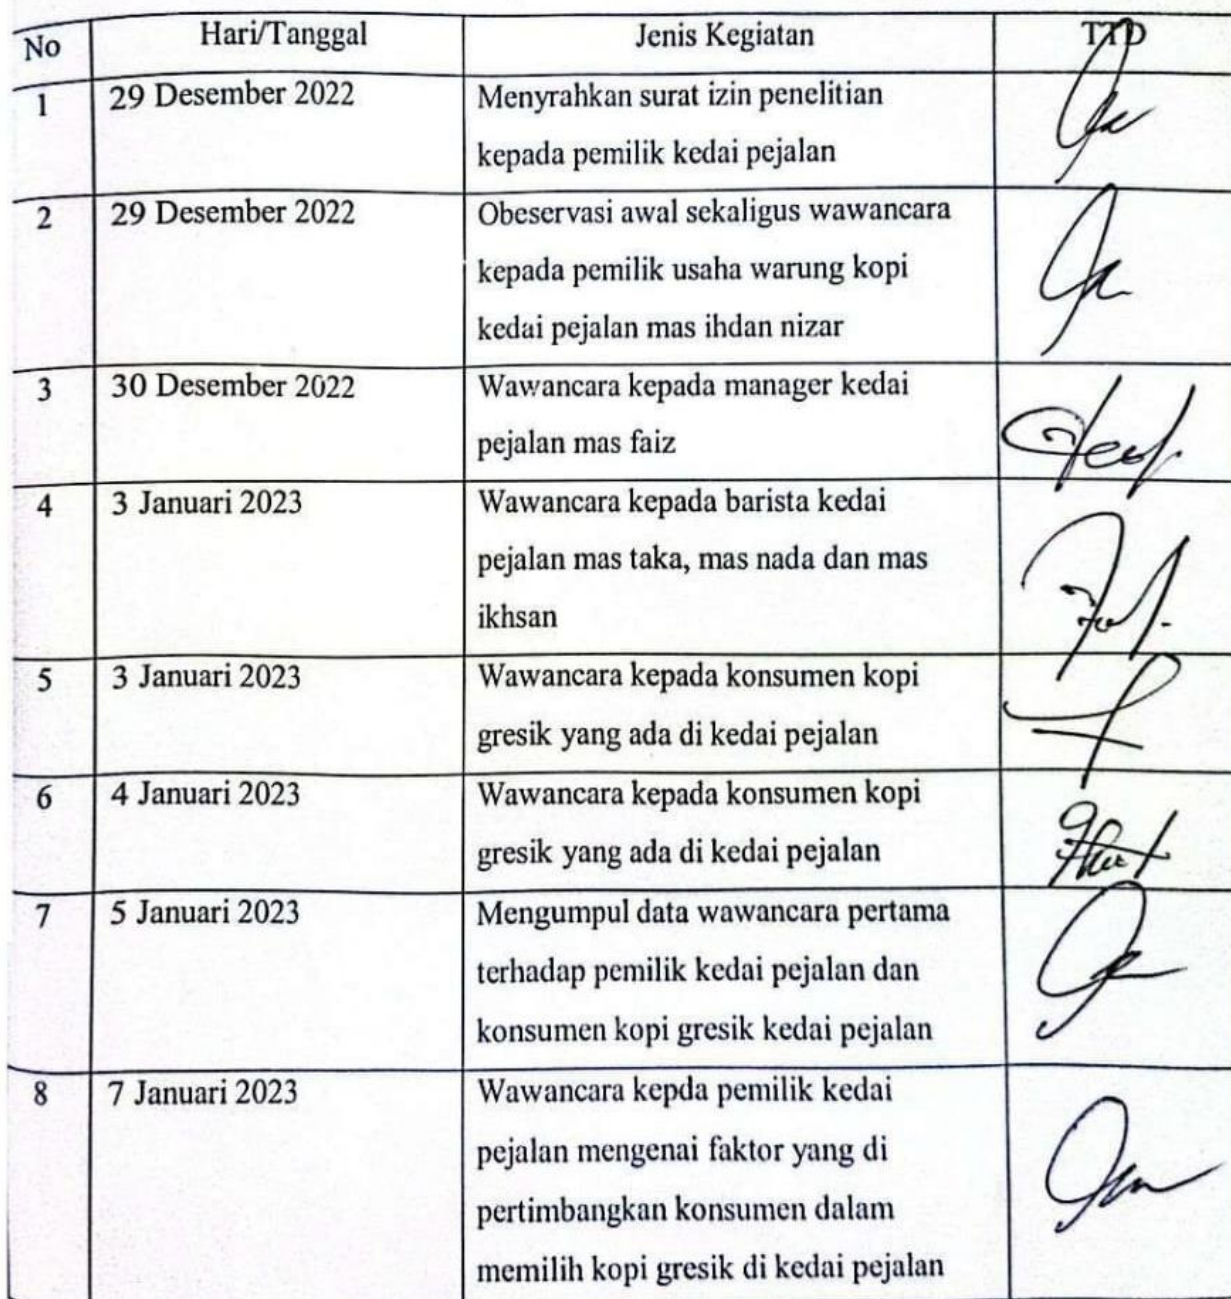 No Hari/Tanggal Jenis Kegiatan TTD
1 29 Desember 2022 Menyrahkan surat izin penelitian
kepada pemilik kedai pejalan
2 29 Desember 2022 Obeservasi awal sekaligus wawancara
kepada pemilik usaha warung kopi
kedai pejalan mas ihdan nizar
3 30 Desember 2022 Wawancara kepada manager kedai
pejalan mas faiz
4 3 Januari 2023 Wawancara kepada barista kedai
pejalan mas taka, mas nada dan mas
ikhsan
5 3 Januari 2023 Wawancara kepada konsumen kopi
gresik yang ada di kedai pejalan
6 4 Januari 2023 Wawancara kepada konsumen kopi
gresik yang ada di kedai pejalan
7 5 Januari 2023 Mengumpul data wawancara pertama
terhadap pemilik kedai pejalan dan
konsumen kopi gresik kedai pejalan
8 7 Januari 2023 Wawancara kepda pemilik kedai
pejalan mengenai faktor yang di
pertimbangkan konsumen dalam
memilih kopi gresik di kedai pejalan